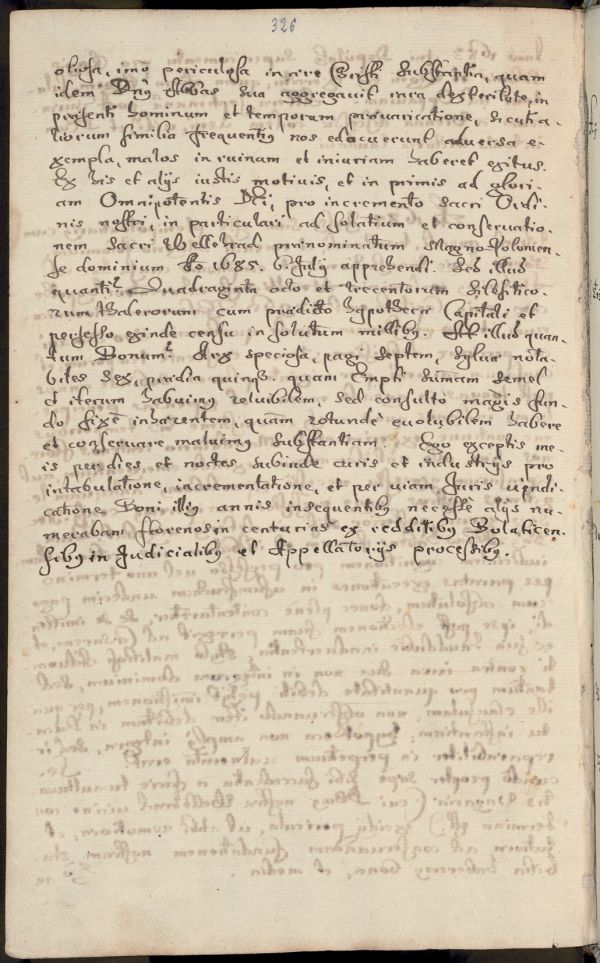 326
otiosa, imò periculosa in aere Christi substantia, quam
idem Dnus Abbas sua aggregavit rara dexteritate, in
praesenti hominum et temporum praevaricatione, sicut a-
liorum similia frequentius nos edocuerunt adversa e-
xempla, malos in ruinam et iniuriam haberet exitus.
Ex his et alijs iustis motivis, et in primis ad glori-
am Omnipotentis Dei, pro incremento sacri Ordi-
nis nostri, in particulari ad solatium et conservatio-
nem sacri Wellehrad praenominatum Magno-Polomen-
se dominium Ao 1685. 6. Julij apprehendi.
Quadraginta octo et trecentorum
rum thalerorum cum praedicto hypotheca Capitali et
perfesso exinde censu in solutum millibus. illud quan-
tum Bonum? Arx speciosa, pagi septem, sylvae nota-
biles sex, praedia quinque. quam Empti summam semel
et iterum habuimus reluibilem, sed consulto magis fun-
do fixè inhaerentem, quàm rotundè evolubilem habere
et conservare maluimus substantiam. Ego exceptis me-
is per dies et noctes subinde curis et industrijs pro
intabulatione, incrementatione, et per viam Juris vendi-
catione Boni illius annis insequentibus necesse alijs nu-
merabam florenos in centurias ex redditibus Bolaticen-
sibus in Judicialibus et Appellatorijs processibus.